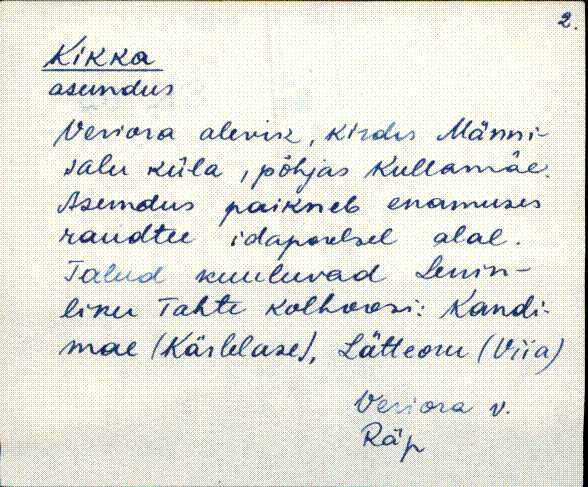 2.
Kikka
asundus
Veriora alevik, kirdes Männi-
salu küla, põhjas Kullamäe.
Asundus paikneb enamuses
raudtee idapoolsel alal.
Talud kuuluvad Lenin-
liku Tahte kolhoosi: Kandi-
mäe (Kärblase), Lätteoru (Viia)
Veriora v.
Räp